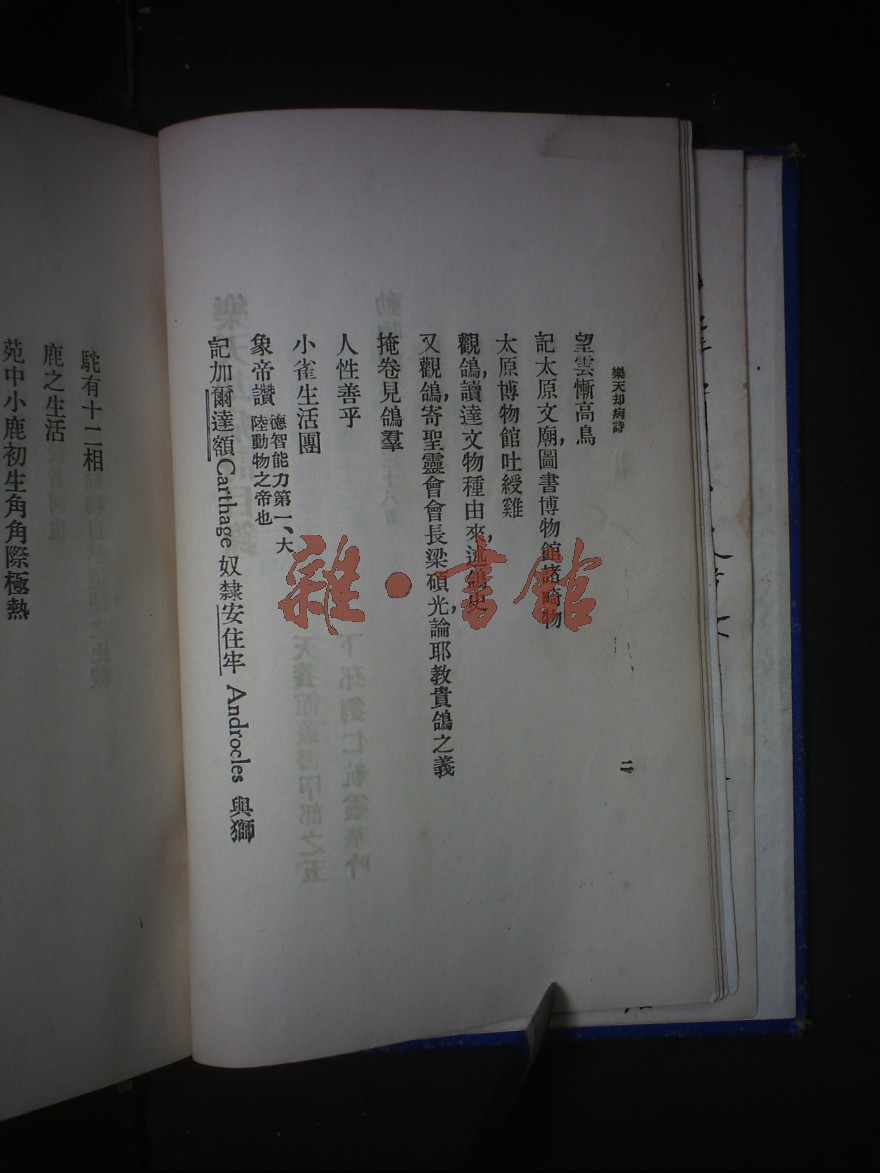 樂天却病詩
二
望雲慚高鳥
記太原文廟,圖書博物館諸畸物
太原博物館吐綬雞
觀鴿,讀達文物種由來,述鴿史
又觀鴿,寄聖靈會會長梁碩光,論耶教貴鴿之義
掩卷見鴿羣
人性善乎
小雀生活團
象帝讚 德智能力第一、大
陸動物之帝也
記加爾達額Carthage 奴隸安住牢 Androcles 與獅
駝有十二相
鹿之生活
苑中小鹿初生角角際極熱
雜·書館